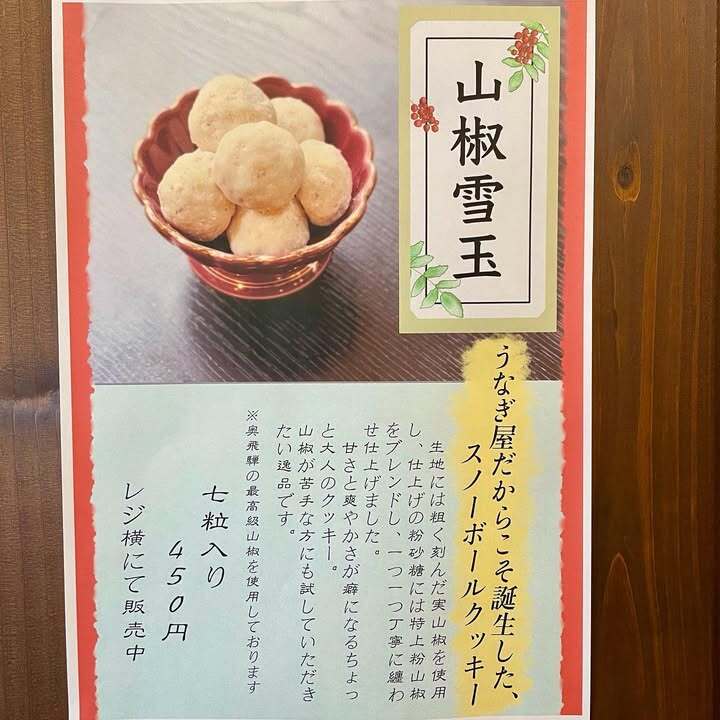 山椒雪玉
うなぎ屋だからこそ誕生した、
スノーボールクッキー
生地には粗く刻んだ実山椒を使用
し、仕上げの粉砂糖には特上粉山椒
をブレンドし、一つ一つ丁寧に纏わ
せ仕上げました。
甘さと爽やかさが癖になるちょっ
と大人のクッキー。
山椒が苦手な方にも試していただき
たい逸品です。
※奥飛騨の最高級山椒を使用しております
七粒入り
450円
レジ横にて販売中